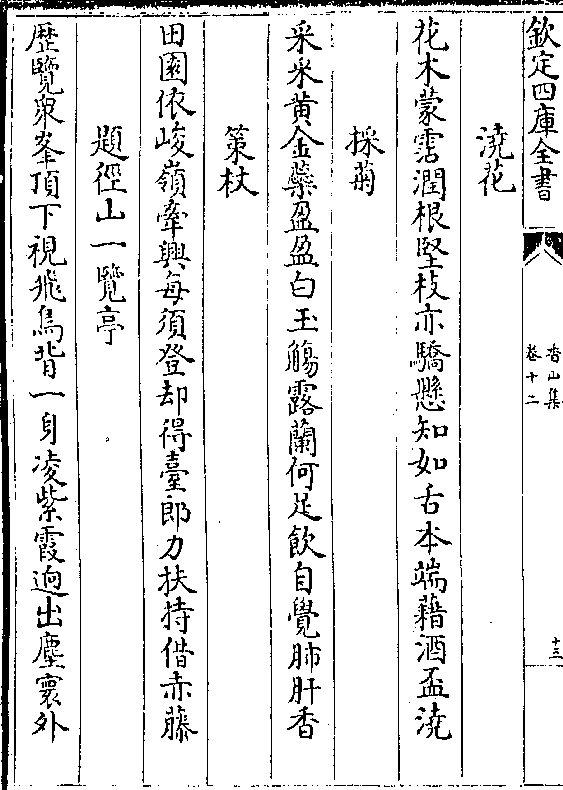 欽定四庫全書
香山集
卷十二
十三
澆花
花木蒙霑潤根堅枝亦驕懸知如舌本端藉酒盃澆
採菊
采采黄金蘂盈盈白玉觴露蘭何足飲自覺肺肝香
策杖
田園依峻嶺牽興每須登却得臺郎力扶持借赤藤
題徑山一覽亭
歴覽衆峯頂下視飛鳥背一身凌紫霞逈出塵寰外